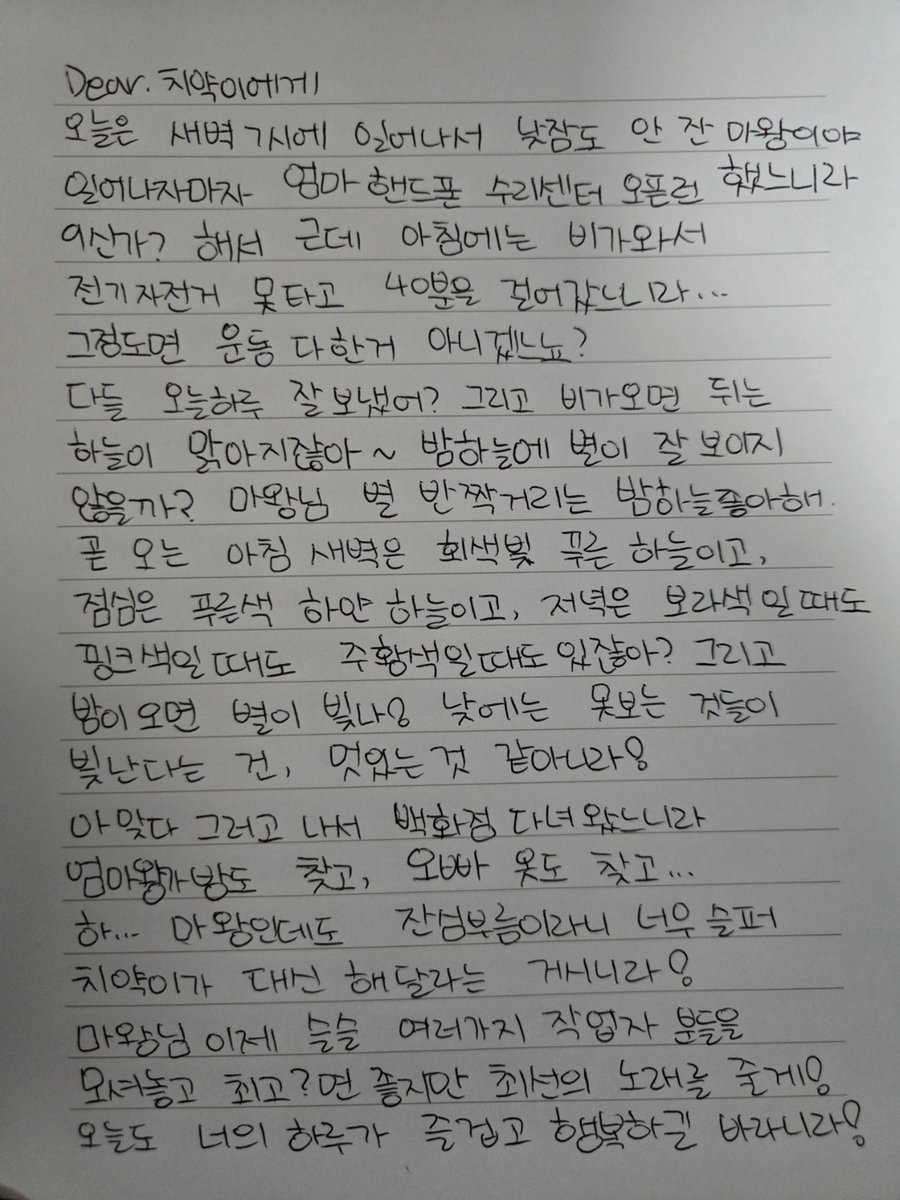 Dear. 치약이에게
오늘은 새벽 7시에 일어나서 낮잠도 안 잔 마왕이야
일어나자마자 엄마 핸드폰 수리센터 오픈런 했느니라
9신가? 해서 근데 아침에는 비가와서
전기자전거 못타고 40분을 걸어갔느니라...
그정도면 운동 다한거 아니겠느뇨?
다들 오늘하루 잘 보냈어? 그리고 비가오면 뒤는
하늘이 맑아지잖아~ 밤하늘에 별이 잘 보이지
않을까? 마왕님 별 반짝거리는 밤하늘좋아해.
곧 오는 아침 새벽은 회색빛 푸른 하늘이고,
점심은 푸른색 하얀 하늘이고, 저녁은 보라색일때도
핑크색일때도 주황색일때도있잖아? 그리고
밤이오면 별이 빛나! 낮에는 못보는 것들이
빛난다는 건, 멋있는것 같아니라!
아맞다 그러고 나서 백화점 다녀왔느니라
엄마왕가방도 찾고, 오빠 옷도 찾고...
하... 마왕인데도 잔심부름이라니 너무슬퍼
치약이가 대신 해달라는 게시니라!
마왕님이제 슬슬 여러가지 작업자 분들을
모셔놓고 최고?면 좋지만 최선의 노래를 줄게!
오늘도 너의하루가 즐겁고 행복하길 바라니라!